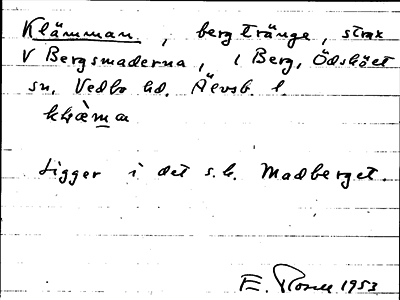 Klämman, bergtränge, strax
V Bergsmaderna, i Berg, Ödsköet
sn, Vedbo hd, Älvsb. l.
klæ̀ma
Ligger i det s.k. Madberget.
E. Rosell 1953